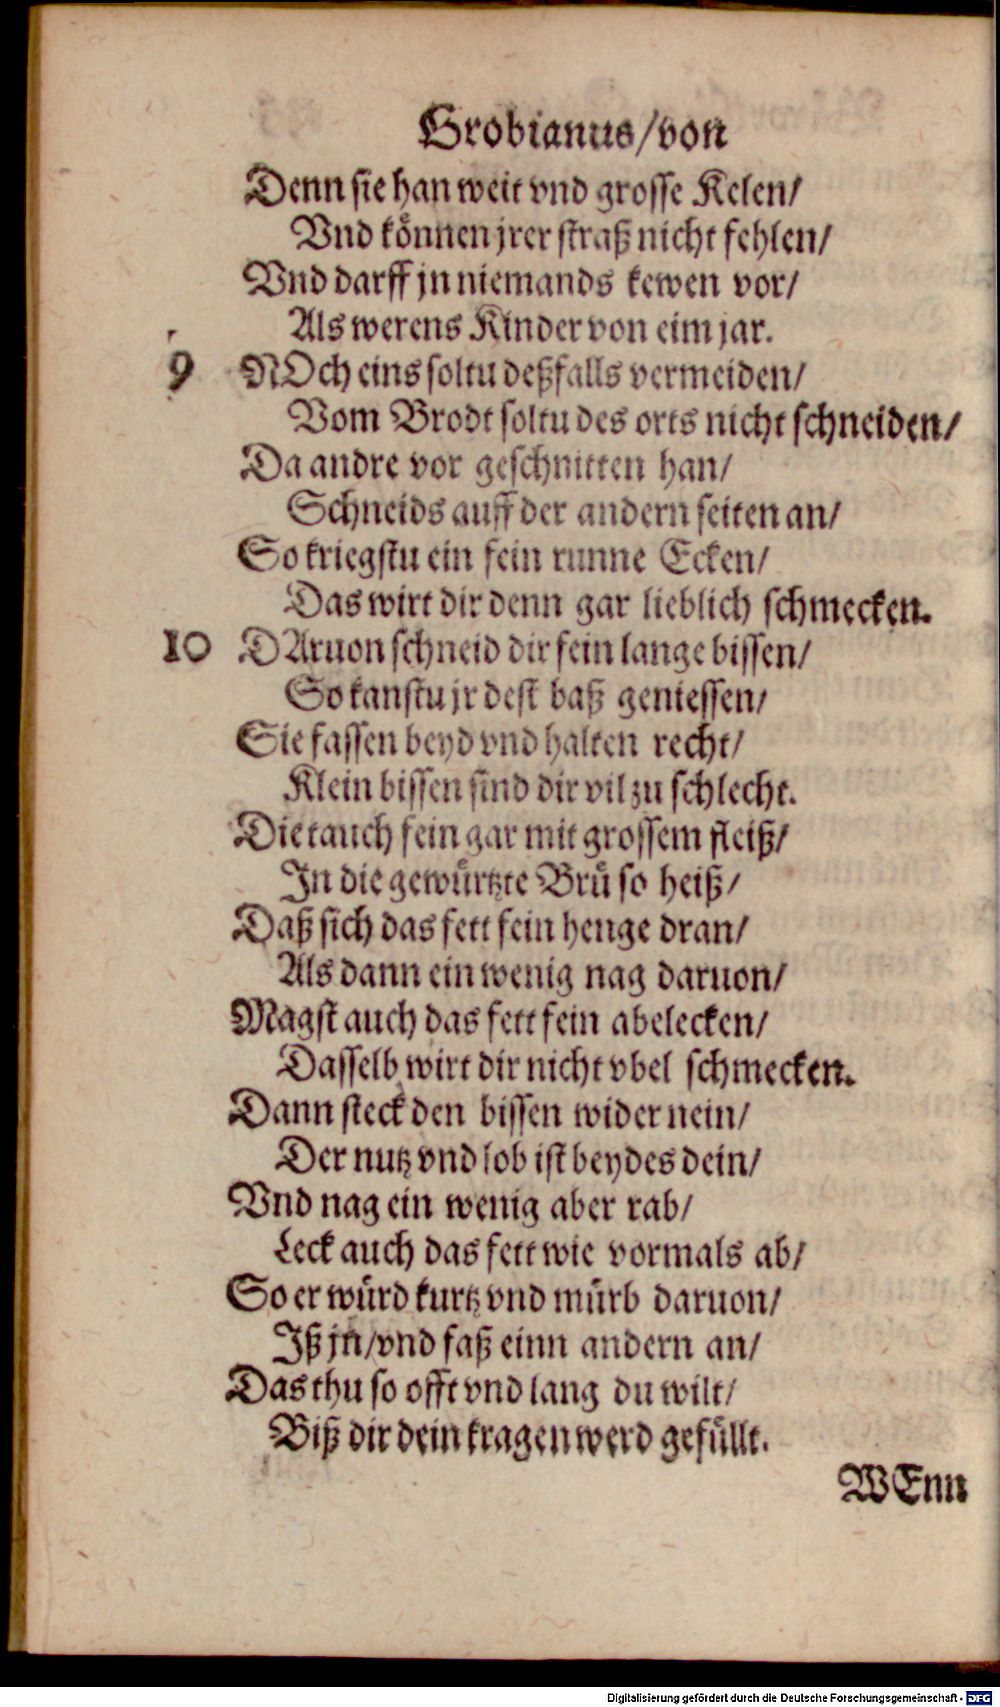 Grobianus/von
Denn sie han weit vnd grosse Kelen/
Vnd können jrer straß nicht fehlen/
Vnd darff jn niemands kewen vor/
Als werens Kinder von eim jar.
9 NOch eins soltu deßfalls vermeiden/
Vom Brodt soltu des orts nicht schneiden/
Da andre vor geschnitten han/
Schneids auff der andern seiten an/
So kriegstu ein fein runne Ecken/
Das wirt dir denn gar lieblich schmecken.
10 DAruon schneid dir fein lange bissen/
So kanstu jr dest baß geniessen/
Sie fassen beyd vnd halten recht/
Klein bissen sind dir vil zu schlecht.
Die tauch fein gar mit grossem fleiß/
In die gewürtzte Brü so heiß/
Daß sich das fett fein henge dran/
Als dann ein wenig nag daruon/
Magst auch das fett fein abelecken/
Dasselb wirt dir nicht vbel schmecken.
Dann steck den bissen wider nein/
Der nutz vnd lob ist beydes dein/
Vnd nag ein wenig aber rab/
Leck auch das fett wie vormals ab/
So er würd kurtz vnd mürb daruon/
Iß jn/vnd faß einn andern an/
Das thu so offt vnd lang du wilt/
Biß dir dein kragen werd gefüllt.
WEnn
Digitalisierung gefördert durch die Deutsche Forschungsgemeinschaft - DFG